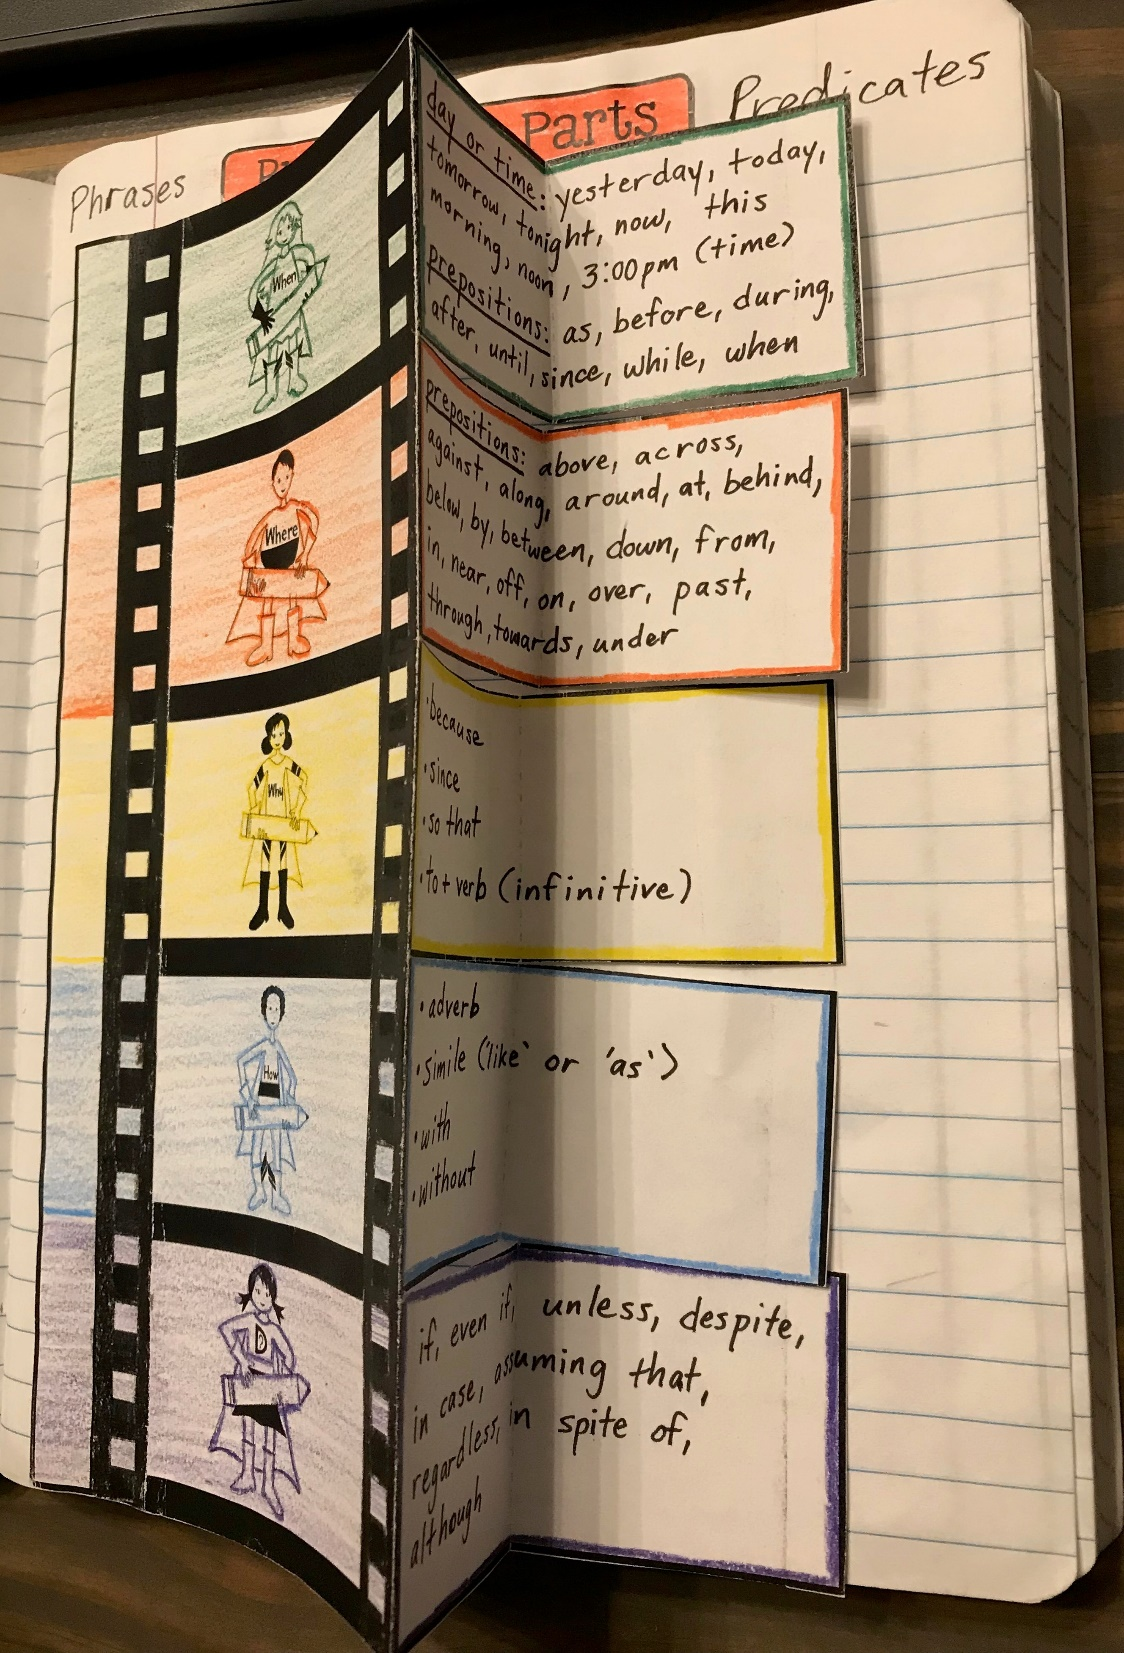 Phrases
Parts
Predicates
When
day or time: yesterday, today,
tomorrow, tonight, now, this
morning, noon, 3:00pm (time)
prepositions: as, before, during,
after, until, since, while, when
Where
prepositions: above, across,
against, along, around, at, behind,
below, by, between, down, from,
in, near, off, on, over, past,
through, towards, under
Why
•because
•since
•so that
•to + verb (infinitive)
How
•adverb
•simile ('like' or 'as')
•with
•without
D
if, even if, unless, despite,
in case, assuming that,
regardless, in spite of,
although